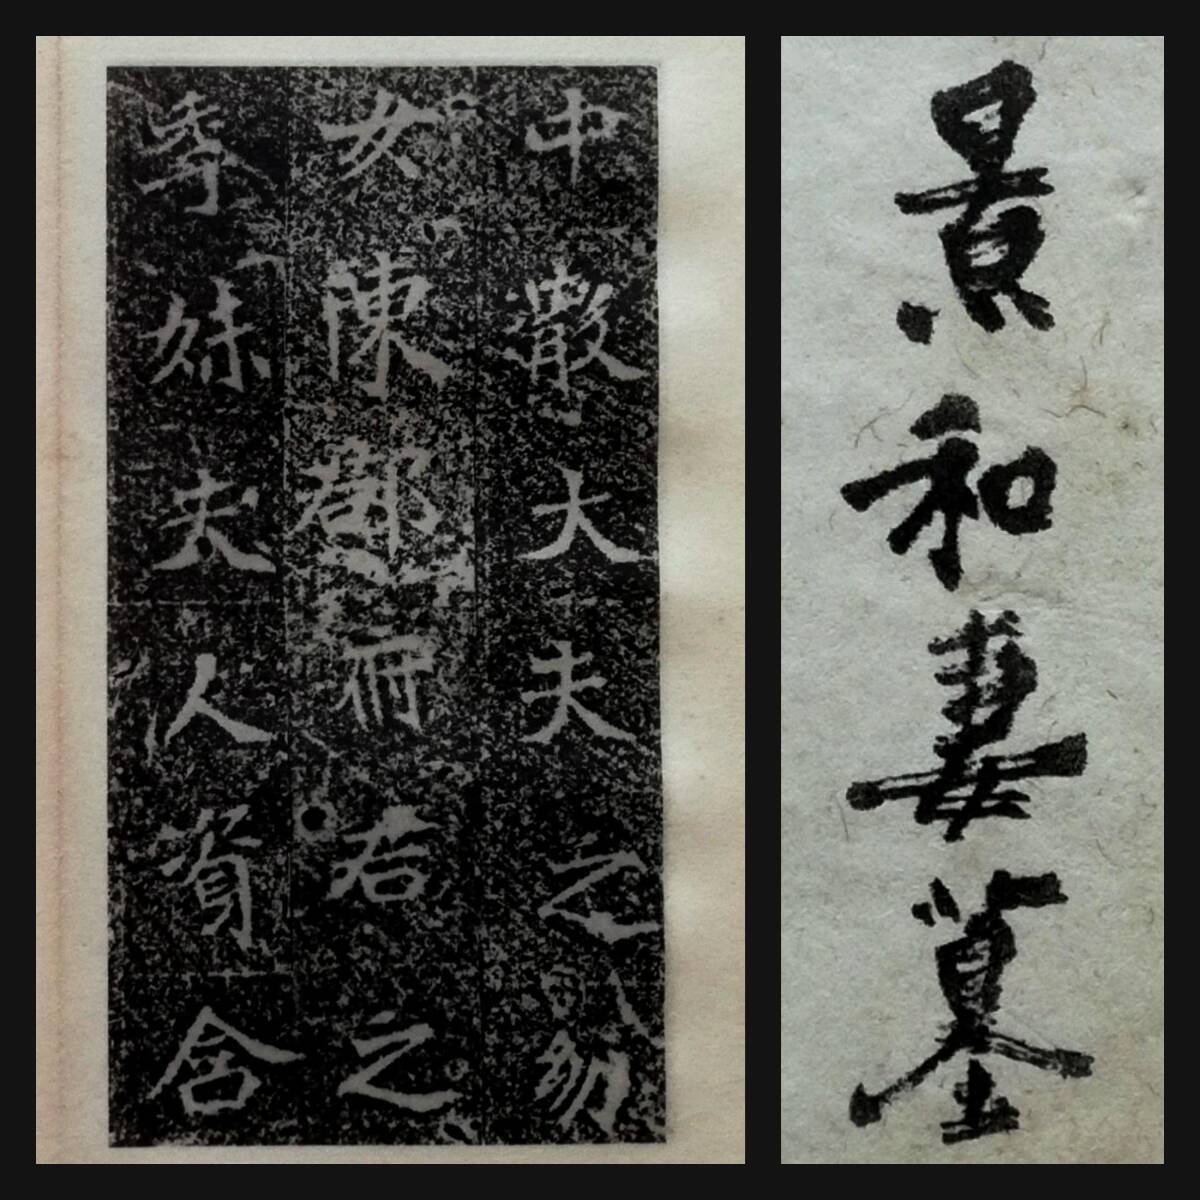 景和妻墓
中散大夫之幼
女陳郡府君之
季妹夫人資含